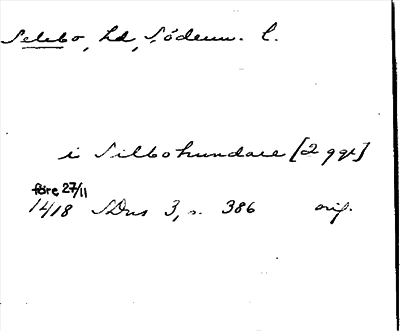 Selebo, hd, Söderm. l.
i Silbohundare [2 ggr]
före 27/11
1418 SDns 3, s. 386 orig.